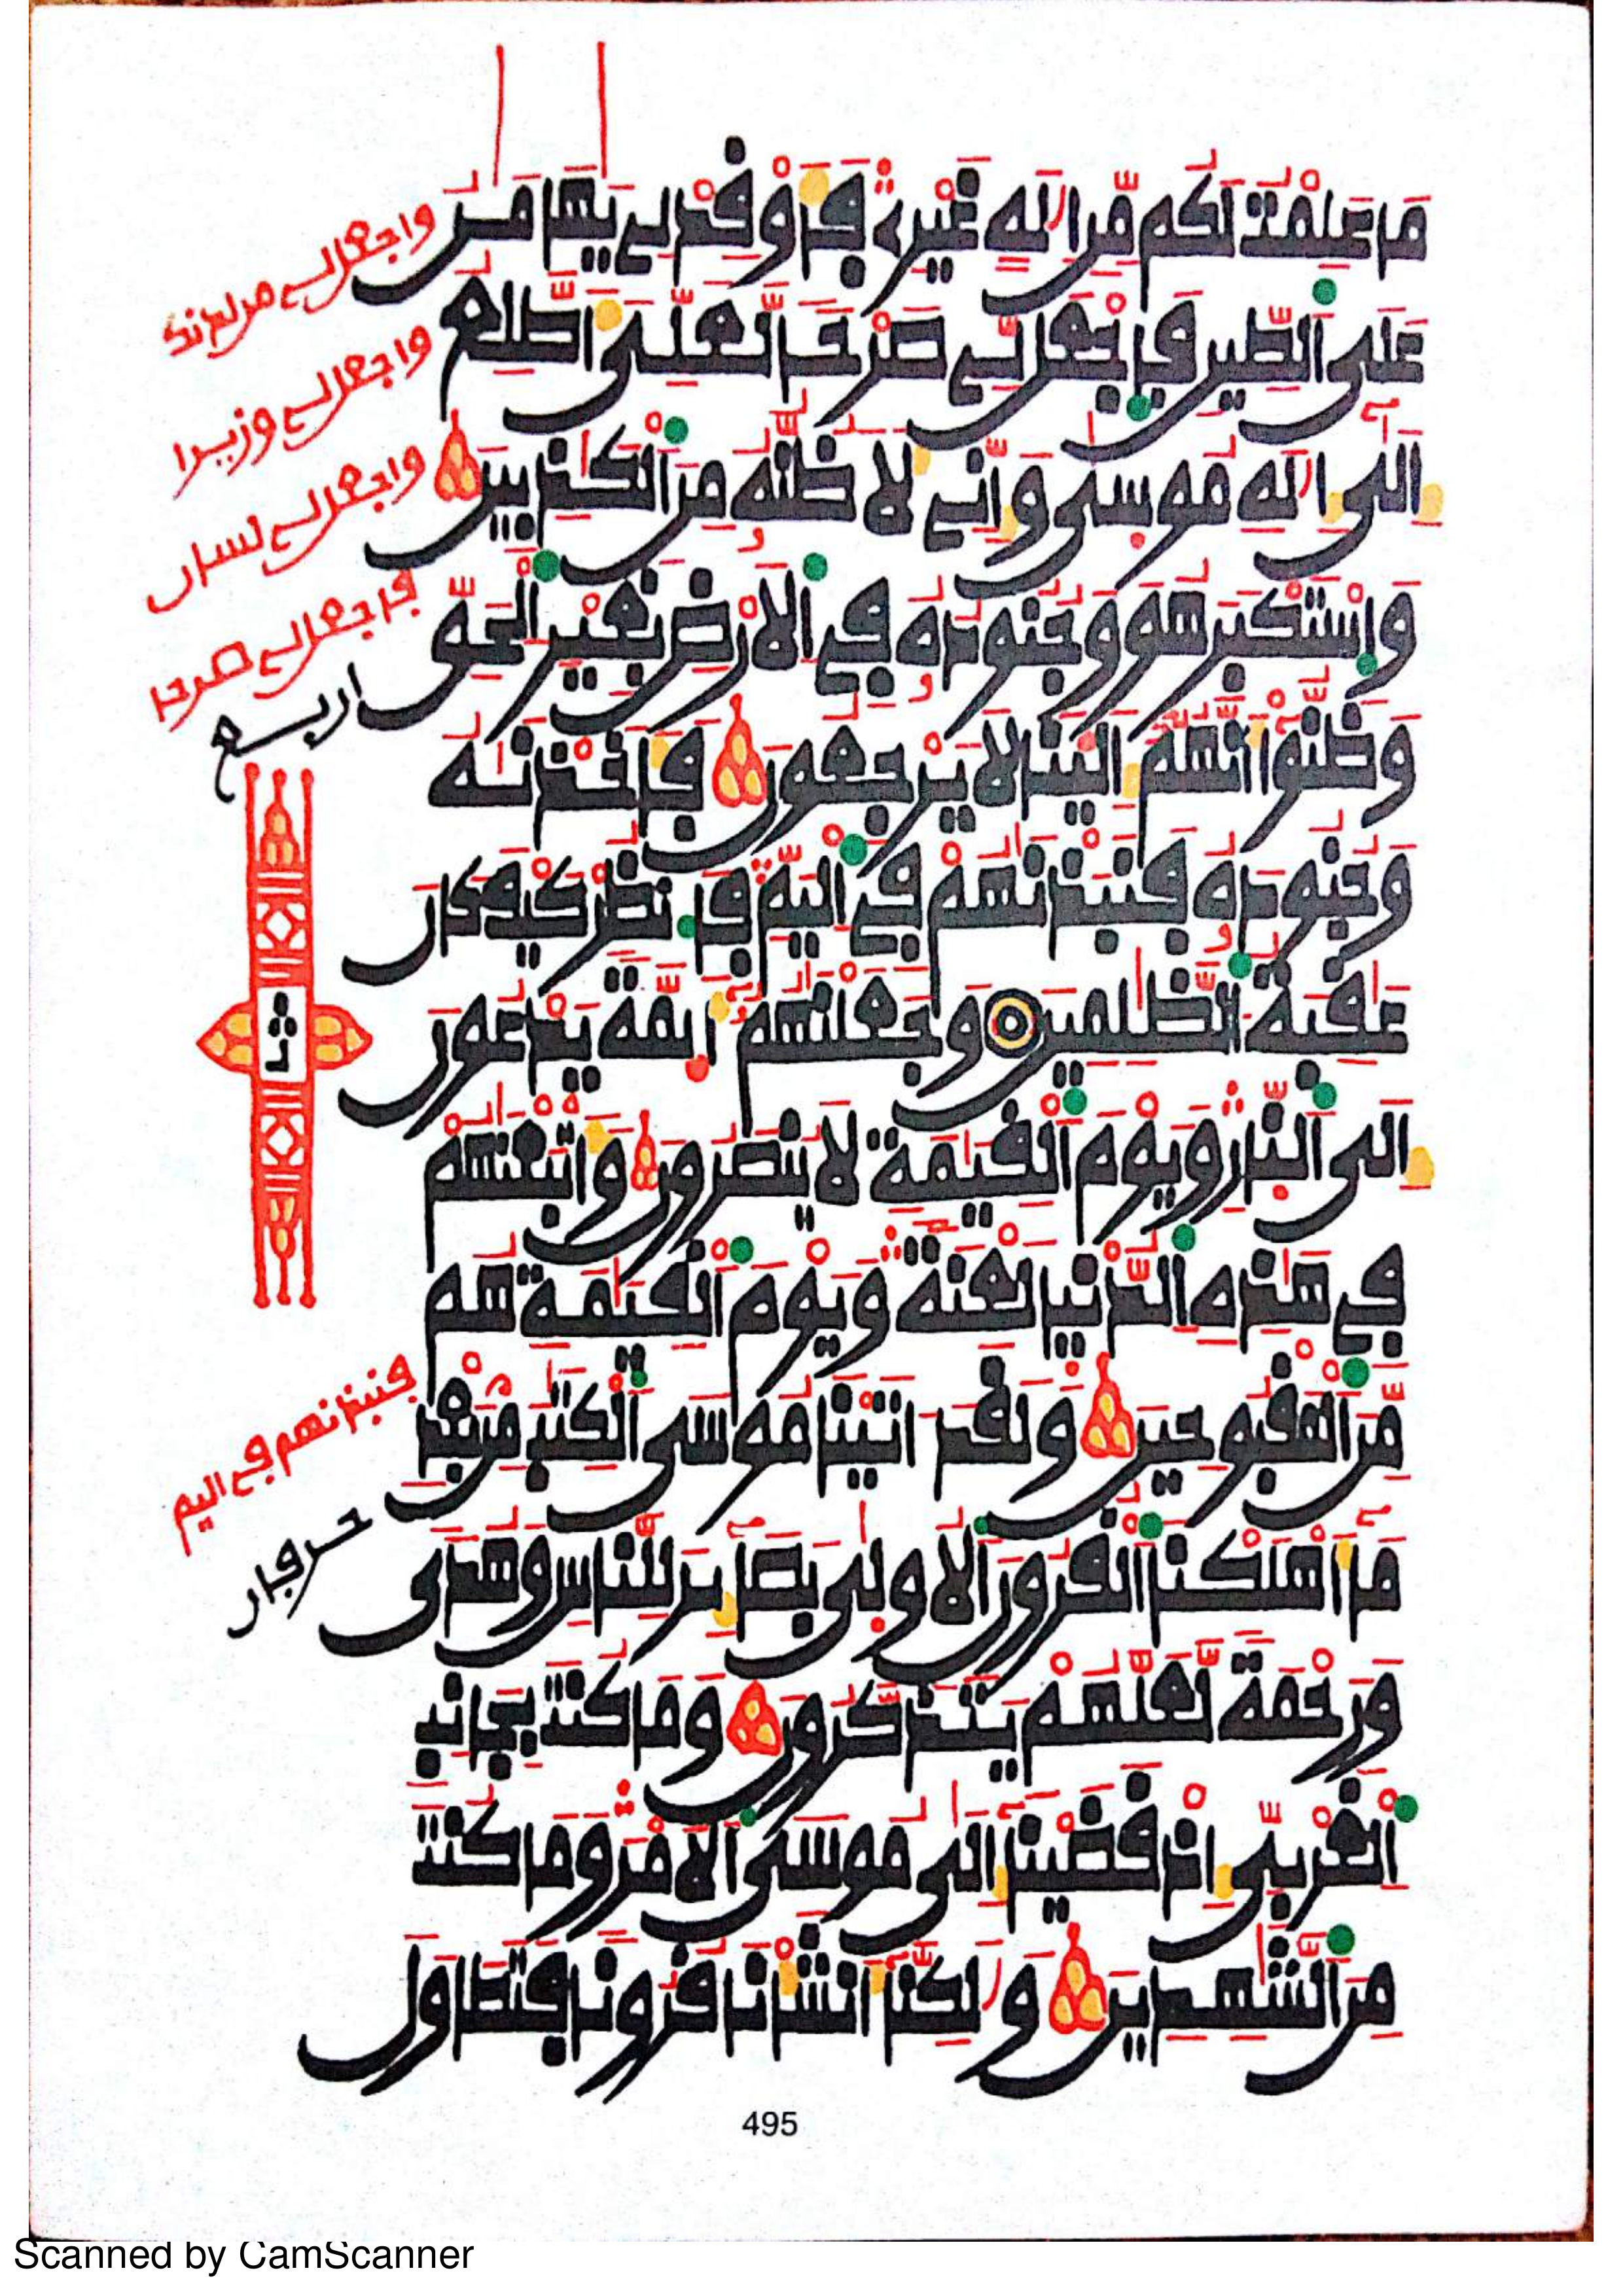 مَا عَلِمْتُ لَكُم مِّنِ اِلَٰهٍ غَيْرِے فَأَوْقِدْ لِے يَٰهَٰمَٰنُ
عَلَى اَلطِّينِ فَاجْعَل لِّے صَرْحاً لَّعَلِّىَ أَطَّلِعُ
إِلَىٰٓ إِلَٰهِ مُوسَىٰ وَإِنِّے لَأَظُنُّهُۥ مِنَ اَلْكَٰذِبِينَ
وَاسْتَكْبَرَ هُوَ وَجُنُودُهُۥ فِے اِلْأَرْضِ بِغَيْرِ اِلْحَقِّ
وَظَنُّوٓاْ أَنَّهُمُۥٓ إِلَيْنَا لَا يَرْجِعُونَ فَأَخَذْنَٰهُ
وَجُنُودَهُۥ فَنَبَذْنَٰهُمْ فِے اِلْيَمِّ فَانظُرْ كَيْفَ كَانَ
عَٰقِبَةُ اُلظَّٰلِمِينَ وَجَعَلْنَٰهُمُۥٓ أَيِمَّةً يَدْعُونَ
إِلَى اَلنّارِ وَيَوْمَ اَلْقِيَٰمَةِ لَا يُنصَرُونَ وَأَتْبَعْنَٰهُمْ
فِے هَٰذِهِ اِلدُّنْيَا لَعْنَةً وَيَوْمَ اَلْقِيَٰمَةِ هُم
مِّنَ اَلْمَقْبُوحِينَ وَلَقَدَ اٰتَيْنَا مُوسَى اَلْكِتَٰبَ مِنۢ بَعْدِ
مَآ أَهْلَكْنَا اَلْقُرُونَ اَلْأُولَىٰ بَصَآئِرَ لِلنَّاسِ وَهُدىً
وَرَحْمَةً لَّعَلَّهُمْ يَتَذَكَّرُونَ وَمَا كُنتَ بِجَانِبِ
اِلْغَرْبِىِّ إِذْ قَضَيْنَآ إِلَىٰ مُوسَى اَلْأَمْرَ وَمَا كُنتَ
مِنَ اَلشَّٰهِدِينَ وَلَٰكِنَّآ أَنشَأْنَا قُرُوناً فَتَطَاوَلَ
واجعل لے من لدنك
واجعل لے وزيرا
واجعل لے لسان
فاجعل لے صرحا
اربع
فنبذنهم فے اليم
حرفان
495
Scanned by CamScanner